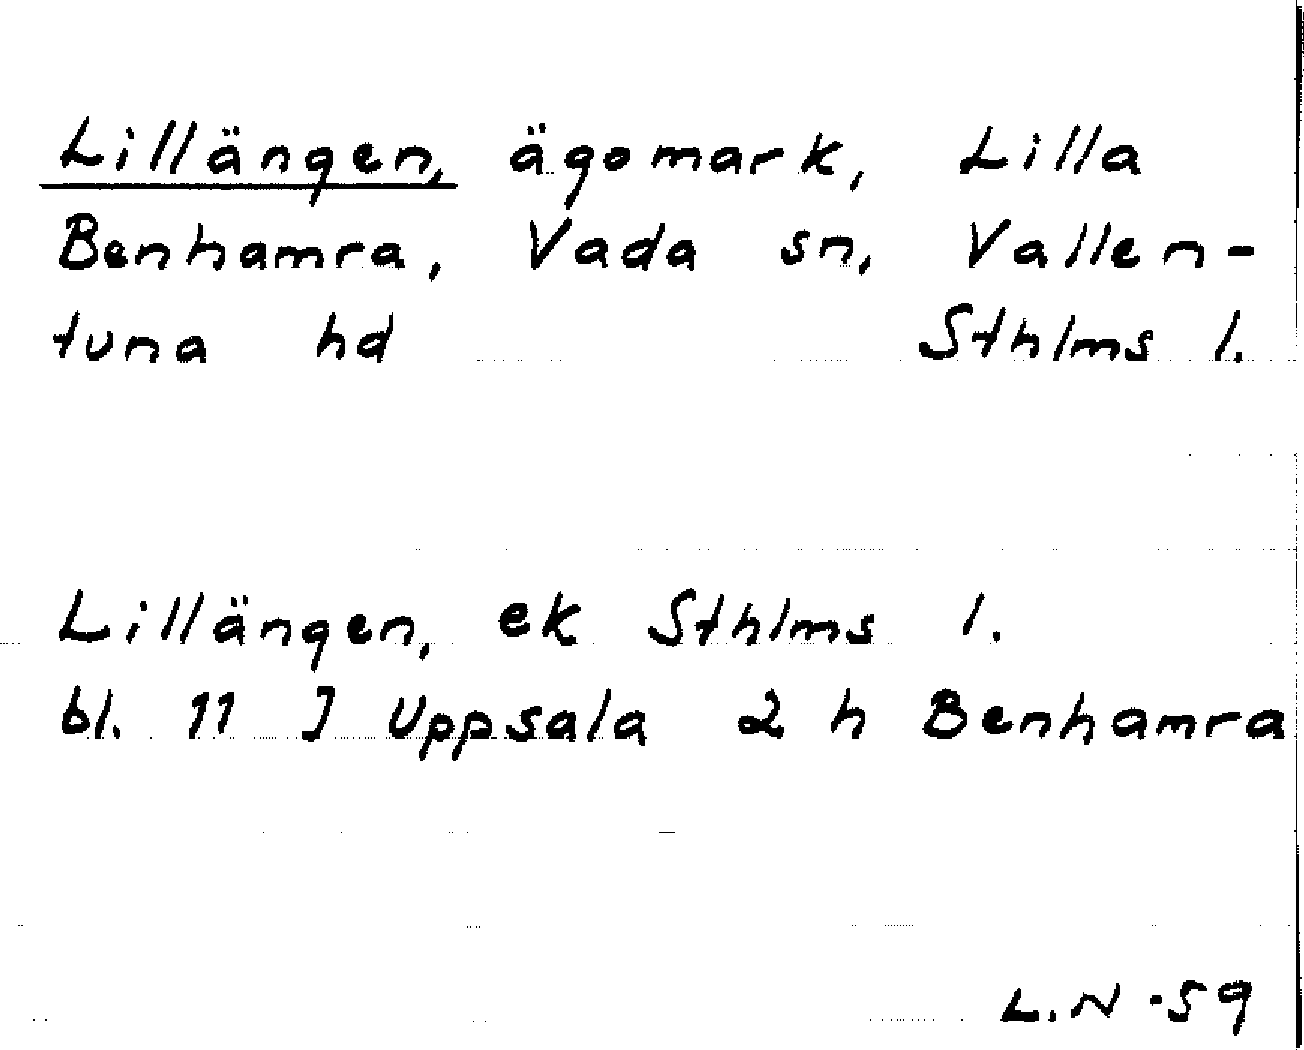 Lillängen, ägomark, Lilla
Benhamra, Vada sn, Vallen-
tuna hd Sthlms l.
Lillängen, ek Sthlms l.
bl. 11 J Uppsala 2 h Benhamra
L.N -59